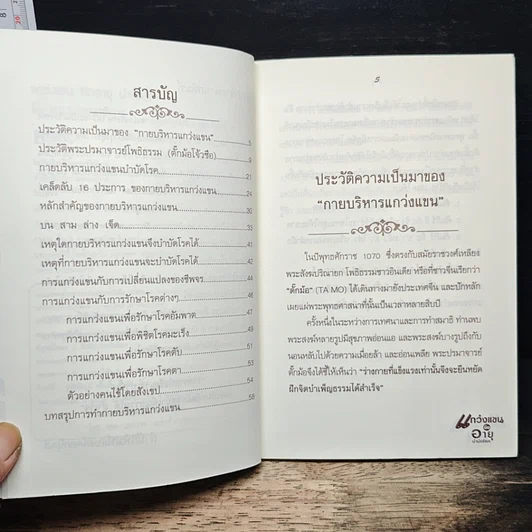 สารบัญ
ประวัติความเป็นมาของ "กายบริหารแกว่งแขน" 5
ประวัติพระปรมาจารย์โพธิธรรม (ตั๊กม้อโจ้วซือ) 9
กายบริหารแกว่งแขนบำบัดโรค 21
เคล็ดลับ 16 ประการ ของกายบริหารแกว่งแขน 24
หลักสำคัญของกายบริหารแกว่งแขน 30
บน สาม ล่าง เจ็ด
เหตุใดกายบริหารแกว่งแขนจึงบำบัดโรคได้
เหตุที่กายบริหารแกว่งแขนจะบำบัดโรคได้
การแกว่งแขนกับการเปลี่ยนแปลงของชีพจร
การแกว่งแขนกับการรักษาโรคต่างๆ
การแกว่งแขนเพื่อรักษาโรคอัมพาต
การแกว่งแขนเพื่อพิชิตโรคมะเร็ง
การแกว่งแขนเพื่อรักษาโรคตับ
การแกว่งแขนเพื่อรักษาโรคตา
ตัวอย่างคนไข้โดยสังเขป 54
บทสรุปการทำกายบริหารแกว่งแขน 58
5
ประวัติความเป็นมาของ
"กายบริหารแกว่งแขน"
ในปีพุทธศักราช 1070 ซึ่งตรงกับสมัยราชวงศ์เหลียง
พระสังฆปริณายก โพธิธรรมชาวอินเดีย หรือที่ชาวจีนเรียกว่า
"ตั๊กม้อ" (TA MO) ได้เดินทางมายังประเทศจีน และปักหลัก
เผยแผ่พระพุทธศาสนาที่นั่นเป็นเวลาหลายสิบปี
ครั้งหนึ่งในระหว่างการเทศนาและการทำสมาธิ ท่านพบ
พระสงฆ์หลายรูปมีสุขภาพอ่อนแอ และพระสงฆ์บางรูปถึงกับ
นอนหลับไปด้วยความเมื่อยล้า และอ่อนเพลีย พระปรมาจารย์
ตั๊กม้อจึงได้ชี้ให้เห็นว่า "ร่างกายที่แข็งแรงเท่านั้นจึงจะยืนหยัด
ฝึกจิตบำเพ็ญธรรมได้สำเร็จ"
แกว่งแขน
อายุ